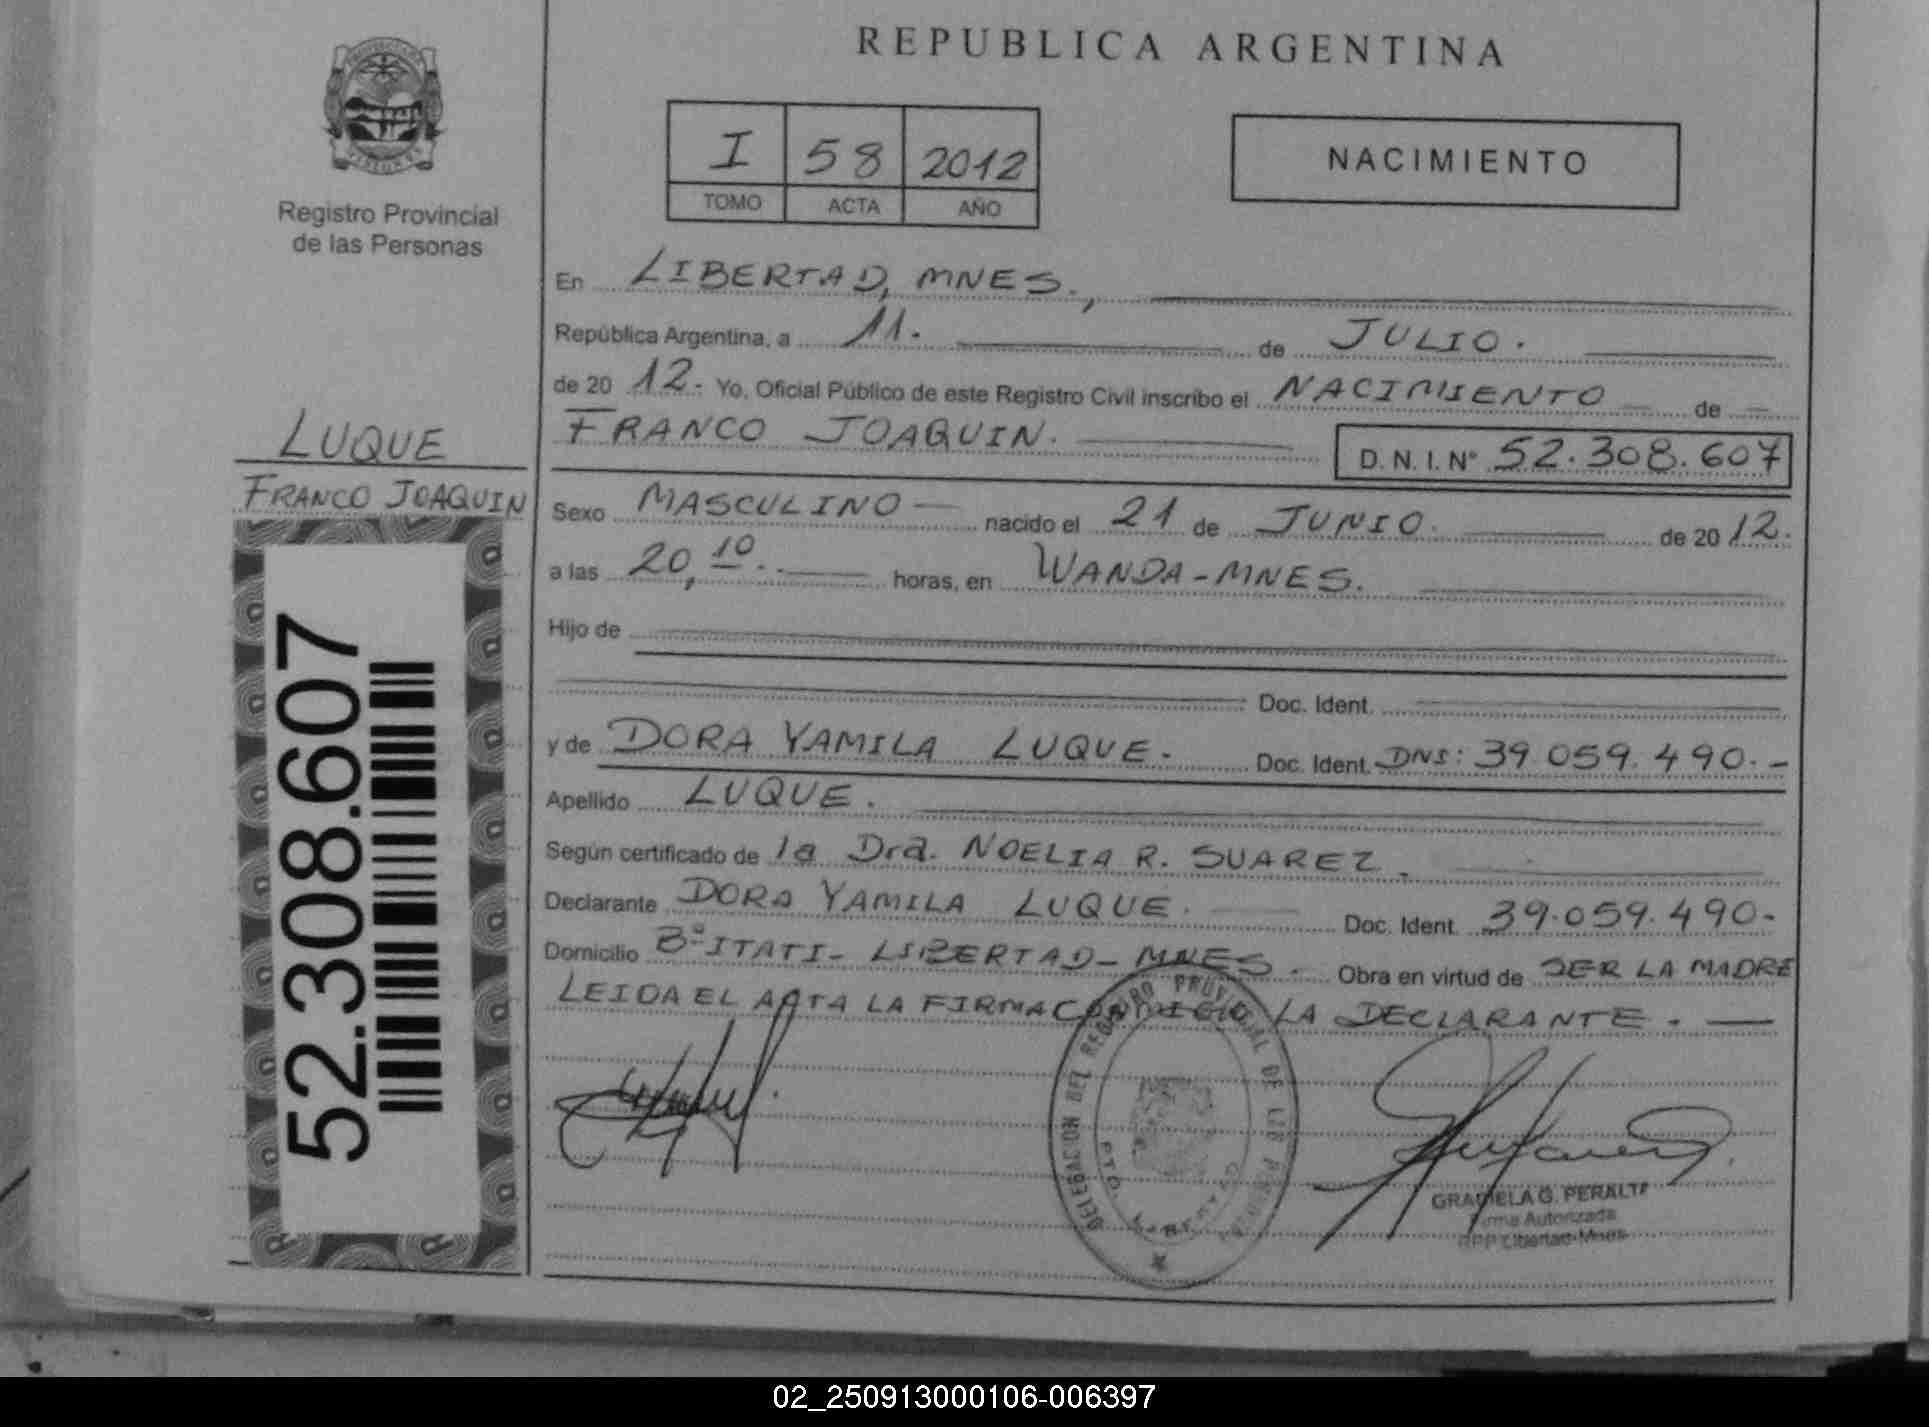 REPUBLICA ARGENTINA
I 58 2012
TOMO ACTA AÑO
NACIMIENTO
Registro Provincial
de las Personas
En LIBERTAD, MNES.,
República Argentina, a 11. de JULIO.
de 20 12. Yo, Oficial Público de este Registro Civil inscribo el NACIMIENTO de
FRANCO JOAQUIN.
D.N.I. Nº 52.308.607
LUQUE
FRANCO JOAQUIN
52.308.607
Sexo MASCULINO nacido el 21 de JUNIO. de 20 12.
a las 20,10. horas, en WANDA-MNES.
Hijo de
Doc. Ident.
y de DORA YAMILA LUQUE. Doc. Ident. DNI: 39.059.490.-
Apellido LUQUE.
Según certificado de la Dra. NOELIA R. SUAREZ.
Declarante DORA YAMILA LUQUE. Doc. Ident. 39.059.490.
Domicilio Bº ITATI- LIBERTAD- MNES. Obra en virtud de SER LA MADRE
LEIDA EL ACTA LA FIRMA CONMIGO LA DECLARANTE.
DELEGACION DEL REGISTRO PROVINCIAL DE LAS
GRACIELA G. PERALTA
Firma Autorizada
RPP Libertad-Mnes
02_250913000106-006397